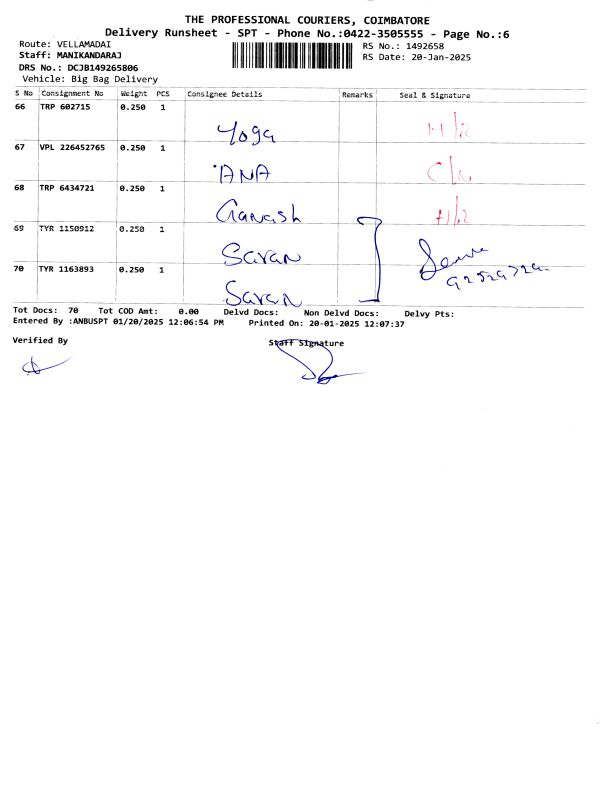 THE PROFESSIONAL COURIERS, COIMBATORE
Delivery Runsheet - SPT - Phone No.:0422-3505555 - Page No.:6
Route: VELLAMADAI
Staff: MANIKANDARAJ
DRS No.: DCJB149265806
Vehicle: Big Bag Delivery
RS No.: 1492658
RS Date: 20-Jan-2025
S No Consignment No Weight PCS Consignee Details Remarks Seal & Signature
66 TRP 602715 0.250 1
Yoga
67 VPL 226452765 0.250 1
ANA
68 TRP 6434721 0.250 1
Ganash
69 TYR 1150912 0.250 1
Saran
70 TYR 1163893 0.250 1
Saran
Tot Docs: 70 Tot COD Amt: 0.00 Delvd Docs: Non Delvd Docs: Delvy Pts:
Entered By :ANBUSPT 01/20/2025 12:06:54 PM Printed On: 20-01-2025 12:07:37
Verified By Staff Signature